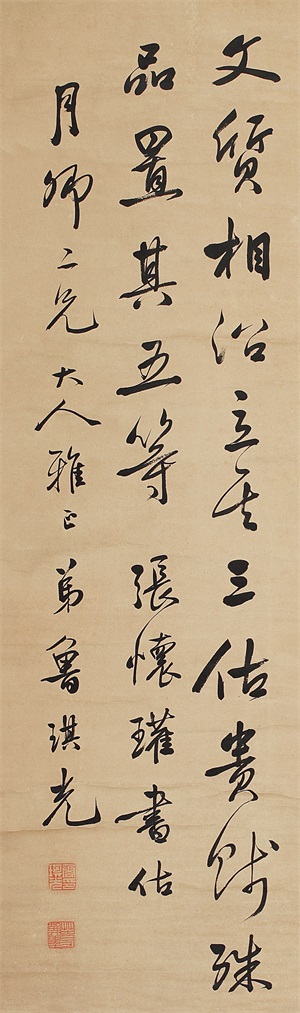 文質相沿立其三估貴賤殊
品置其五等 張懷瓘書估
月卿二兄大人雅正 弟魯琪光